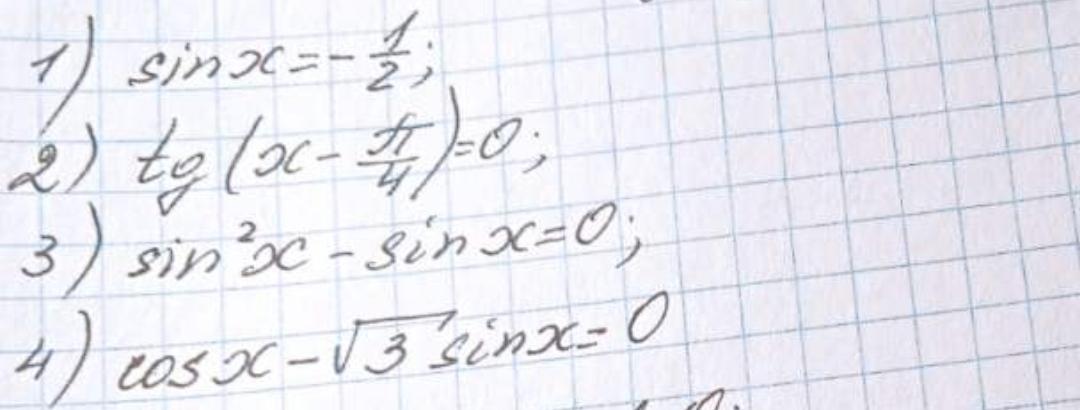 1) sin x = - 1/2;
2) tg (x - π/4) = 0;
3) sin²x - sin x = 0;
4) cos x - √3 sin x = 0